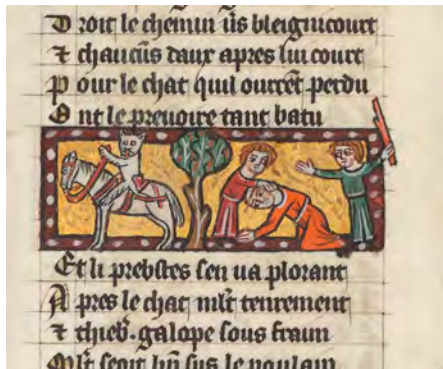 Droit le chemin us bleignicourt
⁊ chaucūs daux apres lui court
Pour le chat quil ourēt perdu
Ont le preuoire tant batu
Et li prebstes sen ua plorant
Apres le chat ml't tenrement
⁊ thieb̄. galope sous fraim
Ml't seoit bn̄ sus le poulain